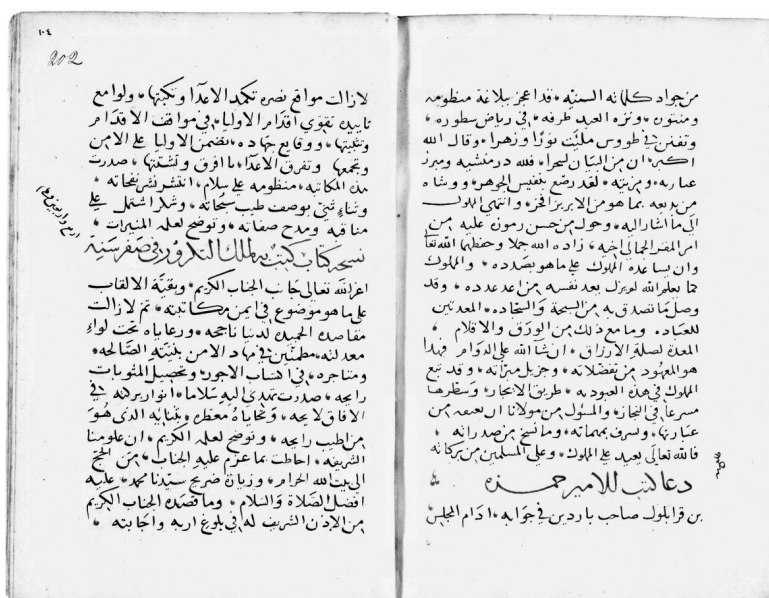 من جواد كلماته السنيه، قد اعجز ببلاغة منظومه
ومنثوره ونزه العبد طرفه، في رياض سطوره،
وتفنن في طروس مليت نورًا وزهرا، وقال الله
اكبر ان من البيان لسحرا، فلله در منشيه ومبرز
عباره ومزيته لقد رصع بنفيس الجوهر ووشاه
من بديعه بما هو من الابريز افخر، وانتهى المملوك
الى ما اشار اليه، وحول من حسن رمون عليه من
امر المقر الجمالي اخيه، زاده الله جملا وحفظهما الله تعا
وان يساعده المملوك على ما هو بصدده، والمملوك
فما يعلم الله لم يزل يعد نفسه من اعدعدده، وقد
وصل ما تصدق به من السبحة والسجاده، المعدتين
للعباده ومامع ذلك من الورق والاقلام،
المعدة لصلة الارزاق، ان شا الله على الدوام فهذا
هو المعهود من تفضلاته، وجزيل مبراته، وقد تبع
المملوك في هذه العبوديه طريق الايجاز، وسطرها
مسرعا في النجاز، والمسئول من مولانا ان
عبارتها، وبسرف بمهماته، وما نسخ من صدراته،
فالله تعالى يعيد على المملوك، وعلى المسلمين من بركاته
دعا كتب للامير حمزه
بن قرايلوك صاحب ماردين في جوابه، ادام المجلس
١٠٤
202
لازالت مواقع نصره تكمد الاعدا وتكبتها، ولوامع
تاييده تقوي اقدام الاوليا، في مواقف الاقدام
وتثبتها، ووقايع جهاده، تضمن الاوليا على الامن
وتجمعها وتفرق الاعدا، افرق وتشتتها، صدرت
هذه المكاتبه، منظومه على سلام، انتشر نشر نفحاته،
وثناء ثنى بوصف طيب سبحاته، وشكر اشتمل على
مناقبه ومدح صفاته، وتوضح لعلمه المنيرات،
نسخة كتاب كتب به لملك التكرور في صفر سنة
اربع واربعين وثم
اعز الله تعالى جانب الجناب الكريم، وبقية الالقاب
على ما هو موضوع في ايمن مكاتبته، ثم لازالت
مقاصده الجميله لدينا ناجحه، ورعاياه تحت لواء
معدلته، مطمئنين في مهاد الامن بنيته الصالحه،
ومتاجره، في اكتساب الاجور، وتحصيل المثوبات
رابحه، صدرت تهدى اليه سلاما، انوار بركته في
الافاق لايحه، وتحاياه معطره، بثنايه الذى هو
من اطيب رايحه، وتوضح لعلمه الكريم، ان علومنا
الشريفه، احاطت بما عزم عليه الجناب، من الحج
الى بيت الله الحرام، وزيارة ضريح سيدنا محمد، عليه
افضل الصلاة والسلام، وما قصده الجناب الكريم
من الاذن الشريف له في بلوغ اربه واجابته،